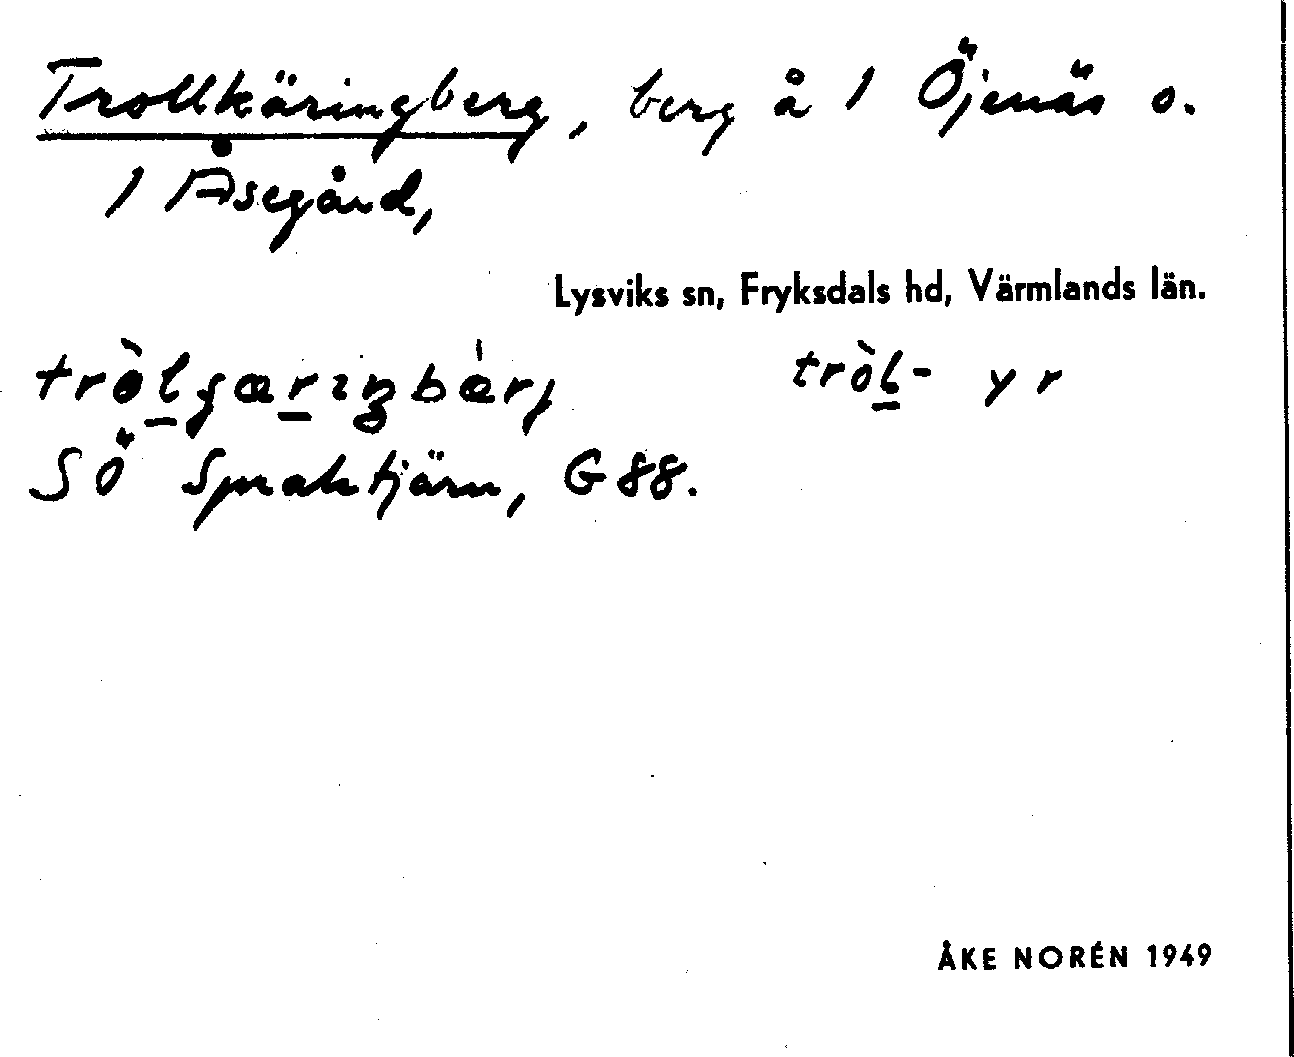 Trollkäringberg, berg å 1 Öjenäs o.
1 Åsegård,
Lysviks sn, Fryksdals hd, Värmlands län.
tròlgæriŋbærj tròl- yr
SÖ Spraktjärn, G 88.
ÅKE NORÉN 1949